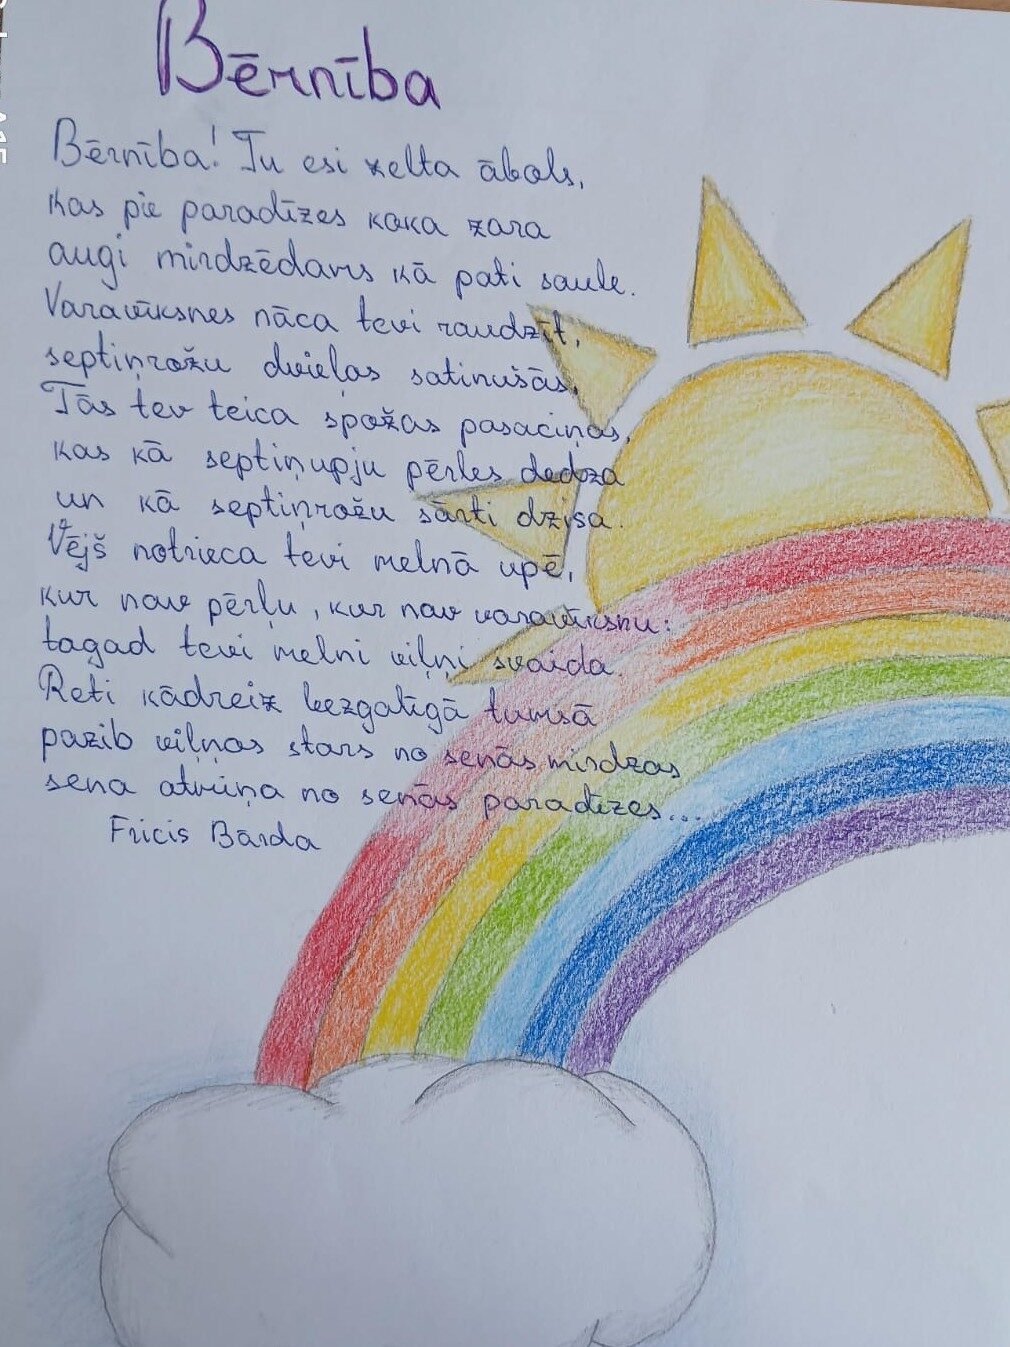 Bērnība
Bērnība! Tu esi zelta ābols,
kas pie paradīzes koka zara
augi mirdzēdams kā pati saule.
Varavīksnes nāca tevi raudzīt,
septiņrožu dvieļos satinušās,
Tās tev teica spožas pasaciņas,
kas kā septiņupju pērles dedza
un kā septiņrožu sārti dzisa.
Vējš notrieca tevi melnā upē,
kur nav pērļu, kur nav varavīksnu:
tagad tevi melni viļņi svaida.
Reti kādreiz bezgalīgā tumsā
pazib viļņos stars no senās mirdzas
sena atmiņa no senās paradīzes...
Fricis Bārda